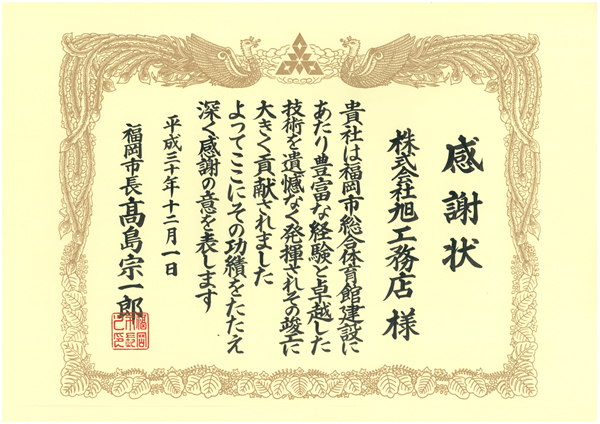 感謝状
株式会社旭工務店様
貴社は福岡市総合体育館建設に
あたり豊富な経験と卓越した
技術を遺憾なく発揮されその竣工に
大きく貢献されました
よってここにその功績をたたえ
深く感謝の意を表します
平成三十年十二月一日
福岡市長髙島宗一郎
福岡
市長
之印